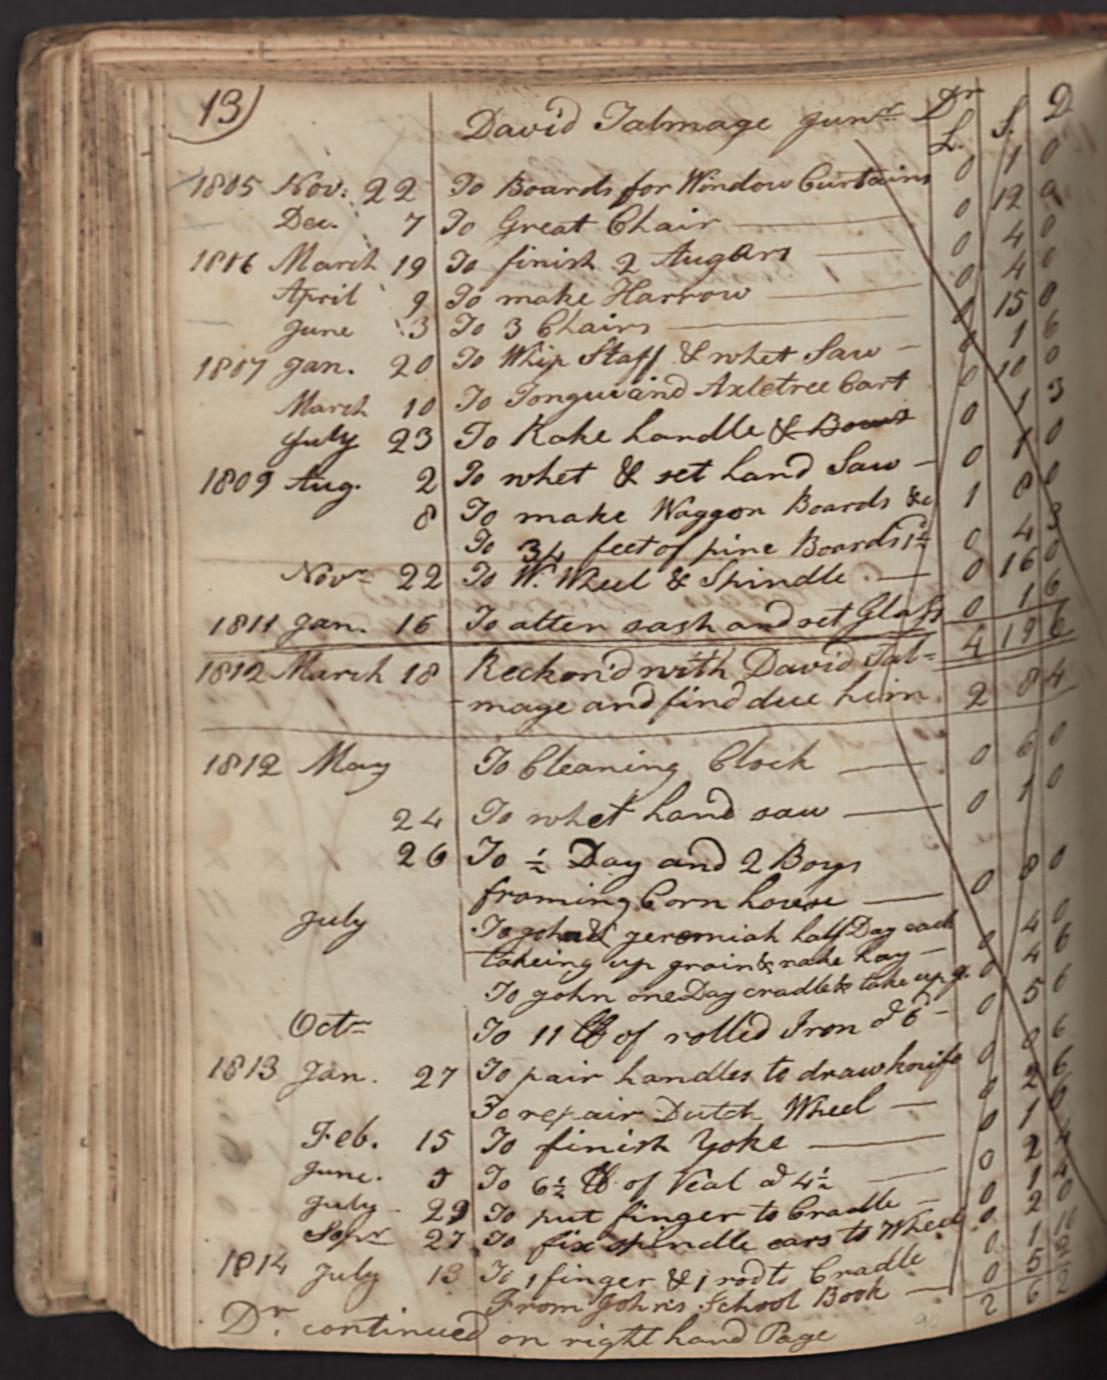 13)
David Talmage Junr. Dr
L. S. D
1805 Nov: 22 To Boards for Window Curtains 0 1 0
Dec. 7 To Great Chair 0 12 0
1806 March 19 To finish 2 Augers 0 4 0
April 9 To make Harrow 0 4 0
June 3 To 3 Chairs 0 15 0
1807 Jan. 20 To Whip Staff & whet Saw 0 1 6
March 10 To Tongue and Axletree Cart 0 10 0
July 23 To Rake handle & Bows 0 1 3
1809 Aug. 2 To whet & set hand Saw 0 1 0
8 To make Waggon Boards &c 1 8 0
To 34 feet of pine Boards 1½ 0 4 3
Novr 22 To W. Wheel & Spindle 0 16 0
1811 Jan. 16 To alter sash and set Glass 0 1 6
4 19 6
1812 March 18 Reckon'd with David Tal=
mage and find due him 2 8 4
1812 May To Cleaning Clock 0 6 0
24 To whet hand saw 0 1 0
26 To ½ Day and 2 Boys
framing Corn house 0 8 0
July To John & Jeremiah half Day each
takeing up grain & rake hay 0 4 0
To John one Day cradle & take up g. 0 4 6
Octr To 11 lb of rolled Iron @ 6 0 5 6
1813 Jan. 27 To pair handles to drawknife 0 0 6
To repair Dutch Wheel 0 2 6
Feb. 15 To finish Yoke 0 1
June. 5 To 6½ lb of Veal @ 4½ 0 2
July 29 To put finger to Cradle 0 1 4
Sepr 27 To fix spindle ears to Wheel 0 2 0
1814 July 13 To 1 finger & 1 rod to Cradle 0 1 10
From John's School Book 0 5
2 6 2
Dr. continued on right hand Page